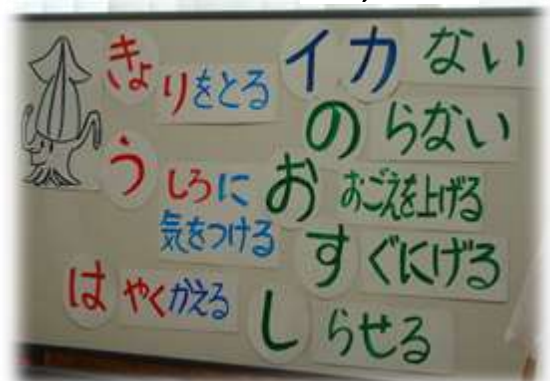 きょりをとる
うしろに
気をつける
はやくかえる
イカない
のらない
おおごえを上げる
すぐにげる
しらせる